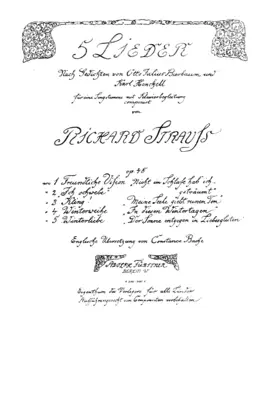 5 LIEDER
Nach Gedichten von Otto Julius Bierbaum und
Karl Henckell
für eine Singstimme mit Klavierbegleitung
componiert
von
RICHARD STRAUSS
op 48
No 1 Freundliche Vision "Nicht im Schlafe hab ich
geträumt"
" 2 Ich schwebe
" 3 Kling! "Meine Seele giebt reinen Ton"
" 4 Winterweihe "In diesen Wintertagen"
" 5 Winterliebe "Der Sonne entgegen in Liebesgluten"
Englische Übersetzung von Constance Bache
ADOLPH FÜRSTNER
BERLIN W
Eigenthum des Verlegers für alle Länder
Aufführungsrecht im Componisten vorbehalten